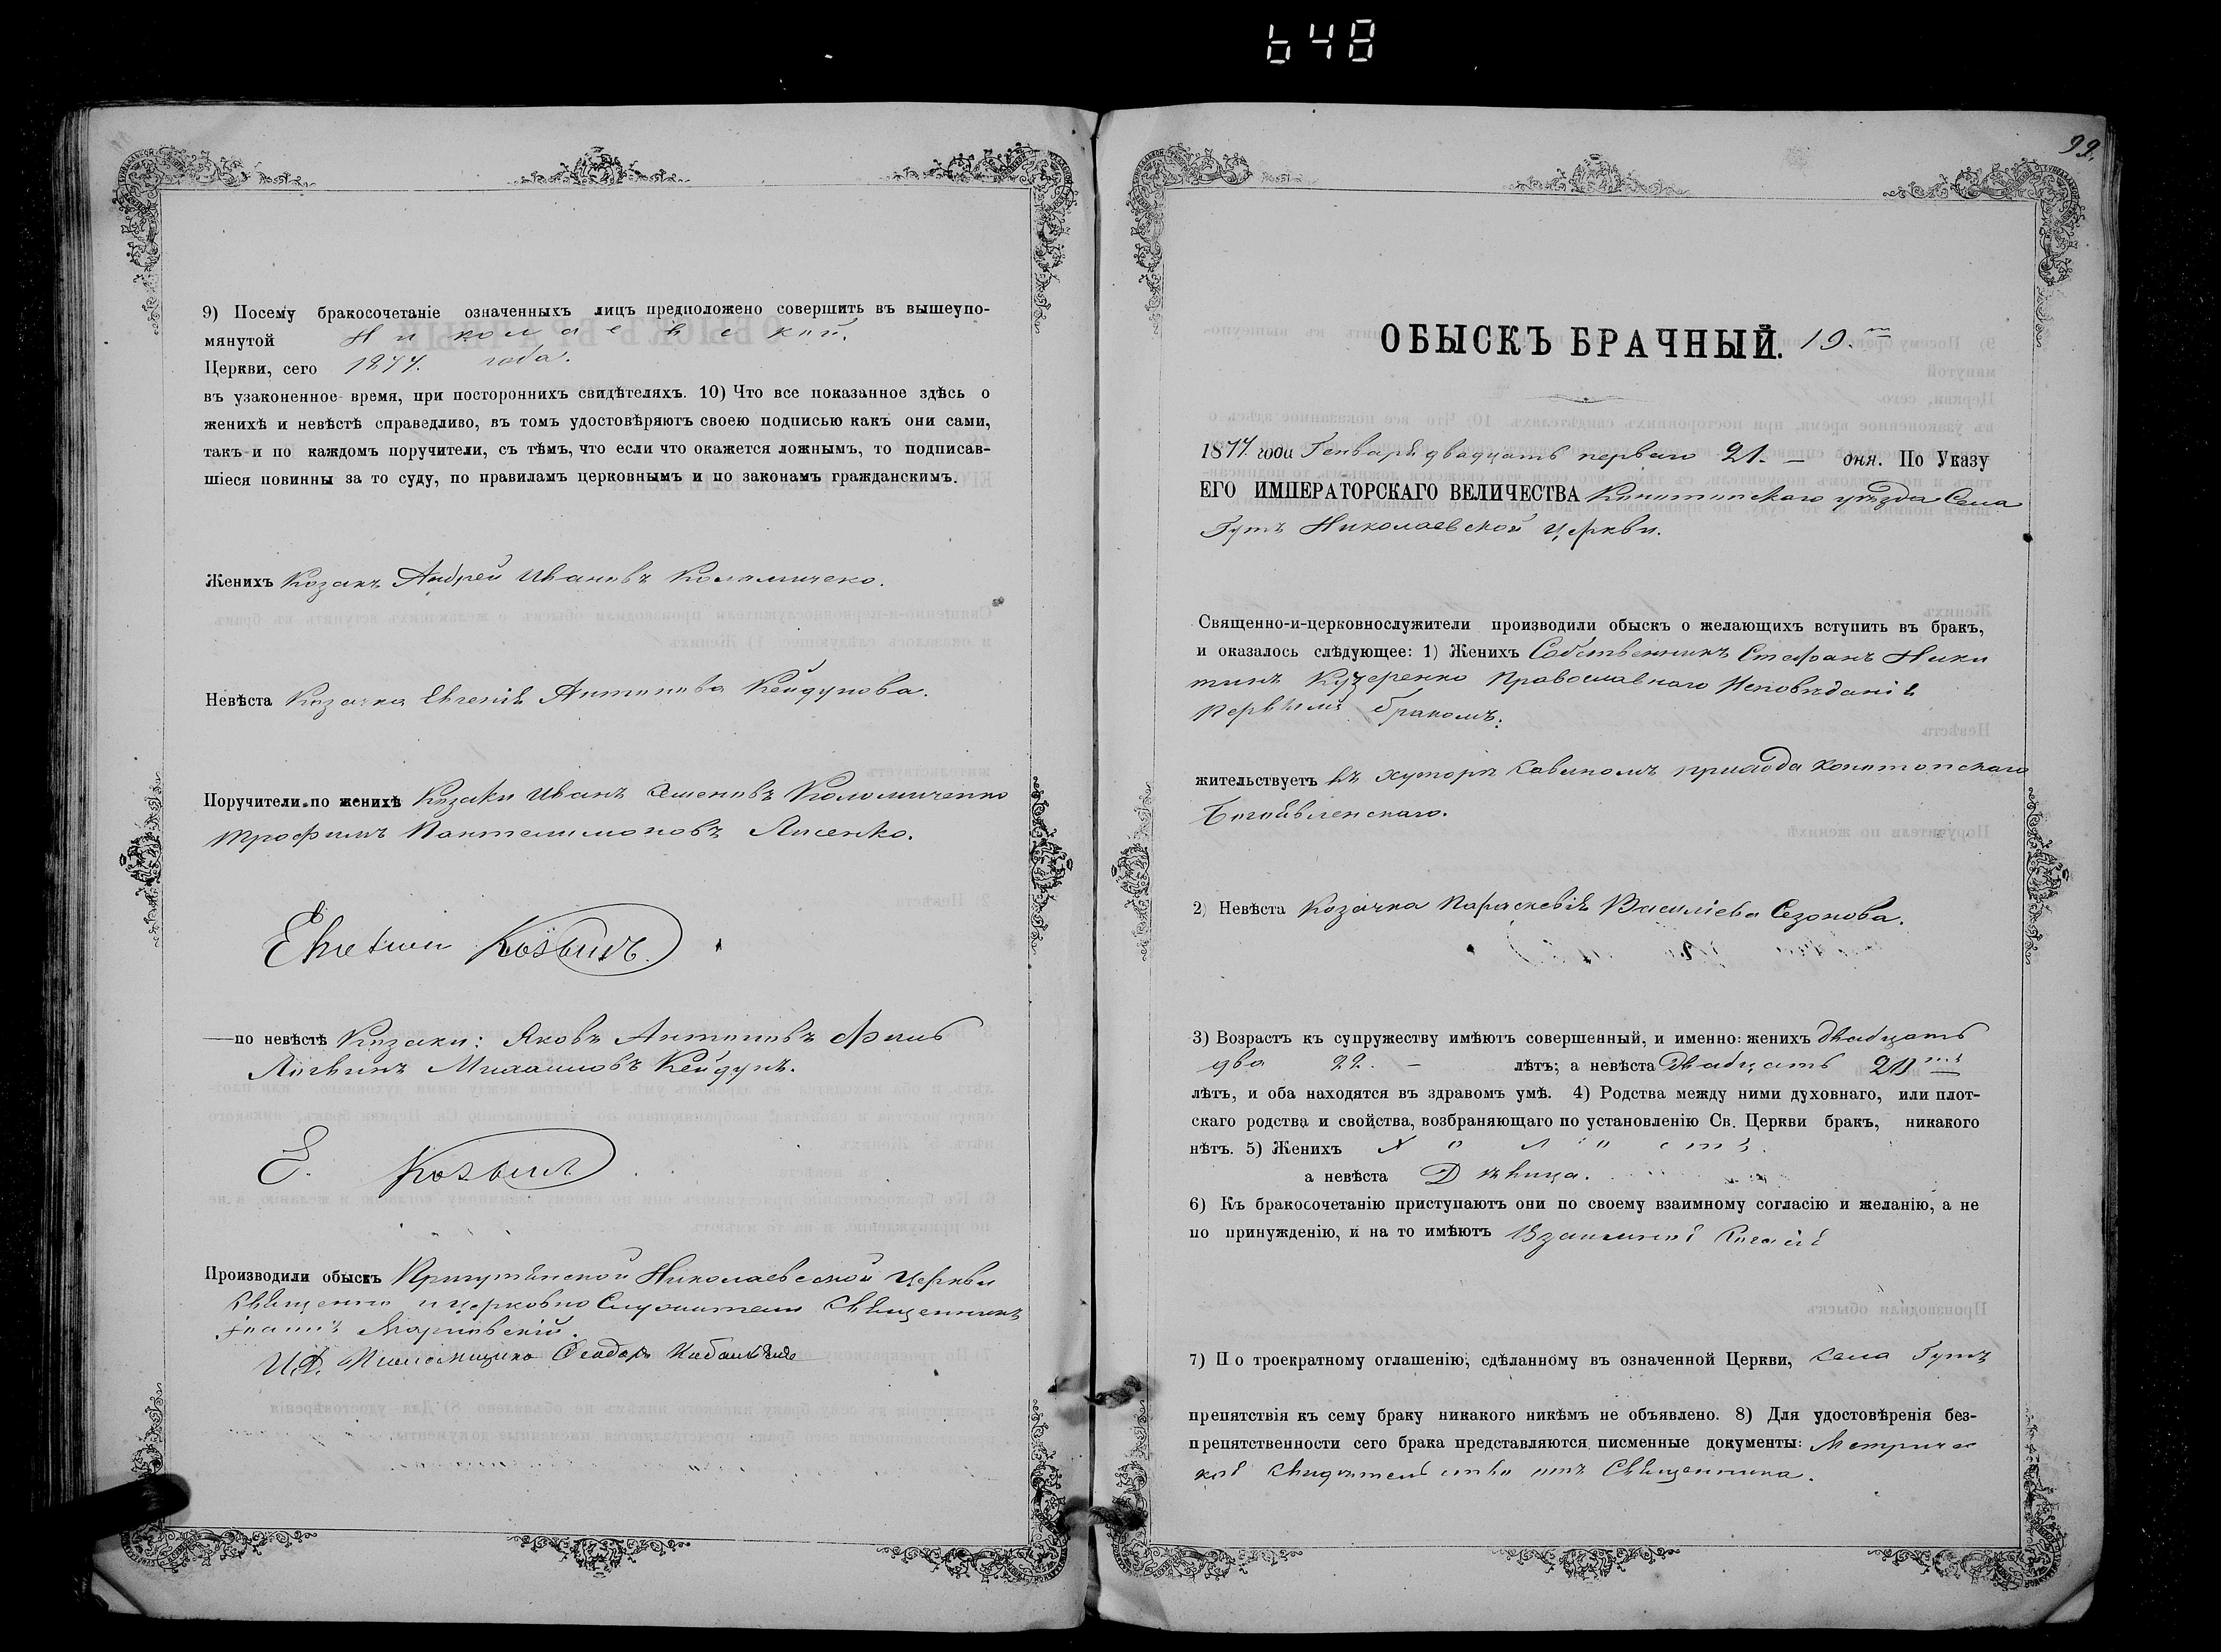 648
9) Посему бракосочетаніе означенныхъ лицъ предположено совершить въ вышеупо-
мянутой Николаевской.
Церкви, сего 1877. года.
въ узаконенное время, при постороннихъ свидѣтеляхъ. 10) Что все показанное здѣсь о
женихѣ и невѣстѣ справедливо, въ томъ удостовѣряютъ своею подписью какъ они сами,
такъ и по каждомъ поручители, съ тѣмъ, что если что окажется ложнымъ, то подписав-
шіеся повинны за то суду, по правиламъ церковнымъ и по законамъ гражданскимъ.
Женихъ Козакъ Андрей Ивановъ
Невѣста Козачка Евгенія Антонова
Поручители по женихѣ Козаки Иванъ Семеновъ Коломиченко
Трофимъ Пантелимоновъ Лисенко.
по невѣстѣ Козаки: Яковъ Антоновъ
Логвинъ Михаиловъ Кейдунъ.
Е.
Производили обыскъ Николаевской Церкви
Священно и церковно Служители Священникъ
Іоаннъ
И.Д. Псаломщика Феодоръ
99.
ОБЫСКЪ БРАЧНЫЙ. 19.
1877. года Генваря двадцать перваго 21. — дня. По Указу
ЕГО ИМПЕРАТОРСКАГО ВЕЛИЧЕСТВА Конотопскаго уѣзда Села
Гутъ Николаевской церкви.
Священно-и-церковнослужители производили обыскъ о желающихъ вступить въ бракъ,
и оказалось слѣдующее: 1) Женихъ Собственникъ Стефанъ Ники
тинъ Кучеренко Православнаго Исповѣданія
Первымъ бракомъ.
жительствуетъ въ хуторѣ прихода Конотопскаго
Богоявленскаго.
2) Невѣста Козачка Параскевія Василіева Сезонова.
3) Возрастъ къ супружеству имѣютъ совершенный, и именно: женихъ двадцать
два 22. — лѣтъ; а невѣста Двадцать 20
лѣтъ, и оба находятся въ здравомъ умѣ. 4) Родства между ними духовнаго, или плот-
скаго родства и свойства, возбраняющаго по установленію Св. Церкви бракъ, никакого
нѣтъ. 5) Женихъ Холостъ.
а невѣста Дѣвица.
6) Къ бракосочетанію приступаютъ они по своему взаимному согласію и желанію, а не
по принужденію, и на то имѣютъ Взаимное
7) По троекратному оглашенію, сдѣланному въ означенной Церкви, села Гутъ
препятствія къ сему браку никакого никѣмъ не объявлено. 8) Для удостовѣренія без-
препятственности сего брака представляются писменные документы: Метричес
кое Свидѣтельство отъ Священника.